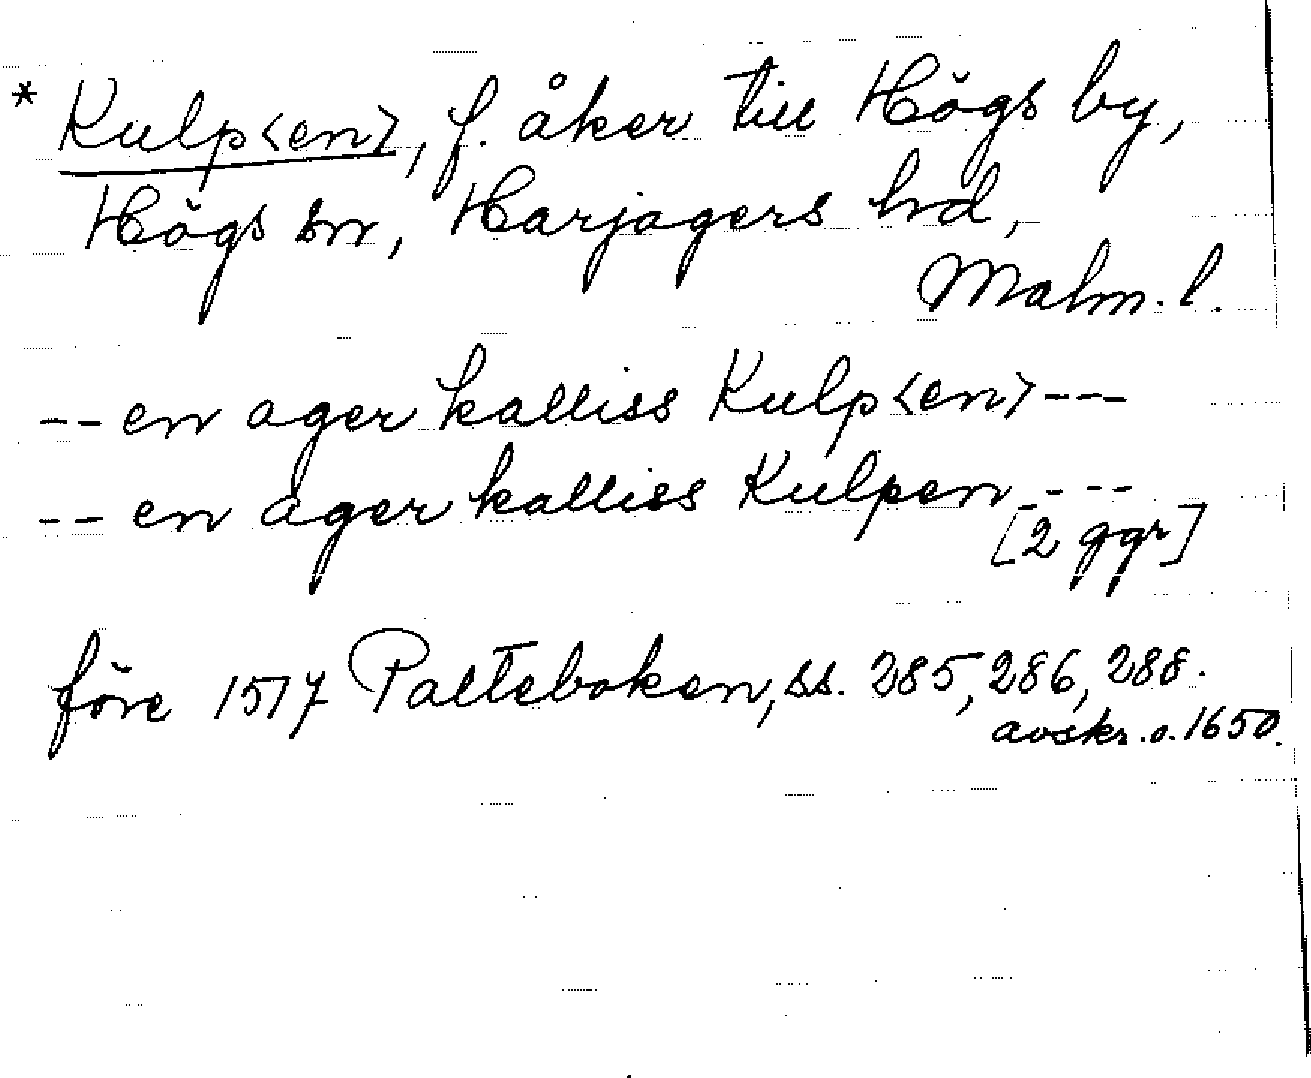 * Kulp<en>, f. åker till Högs by,
Högs sn, Harjagers hd,
Malm. l.
-- en ager kalliss Kulp<en> ---
-- en ager kalliss Kulpen ---
[2 ggr]
före 1517 Palteboken, ss. 285, 286, 288.
avskr. o. 1650.